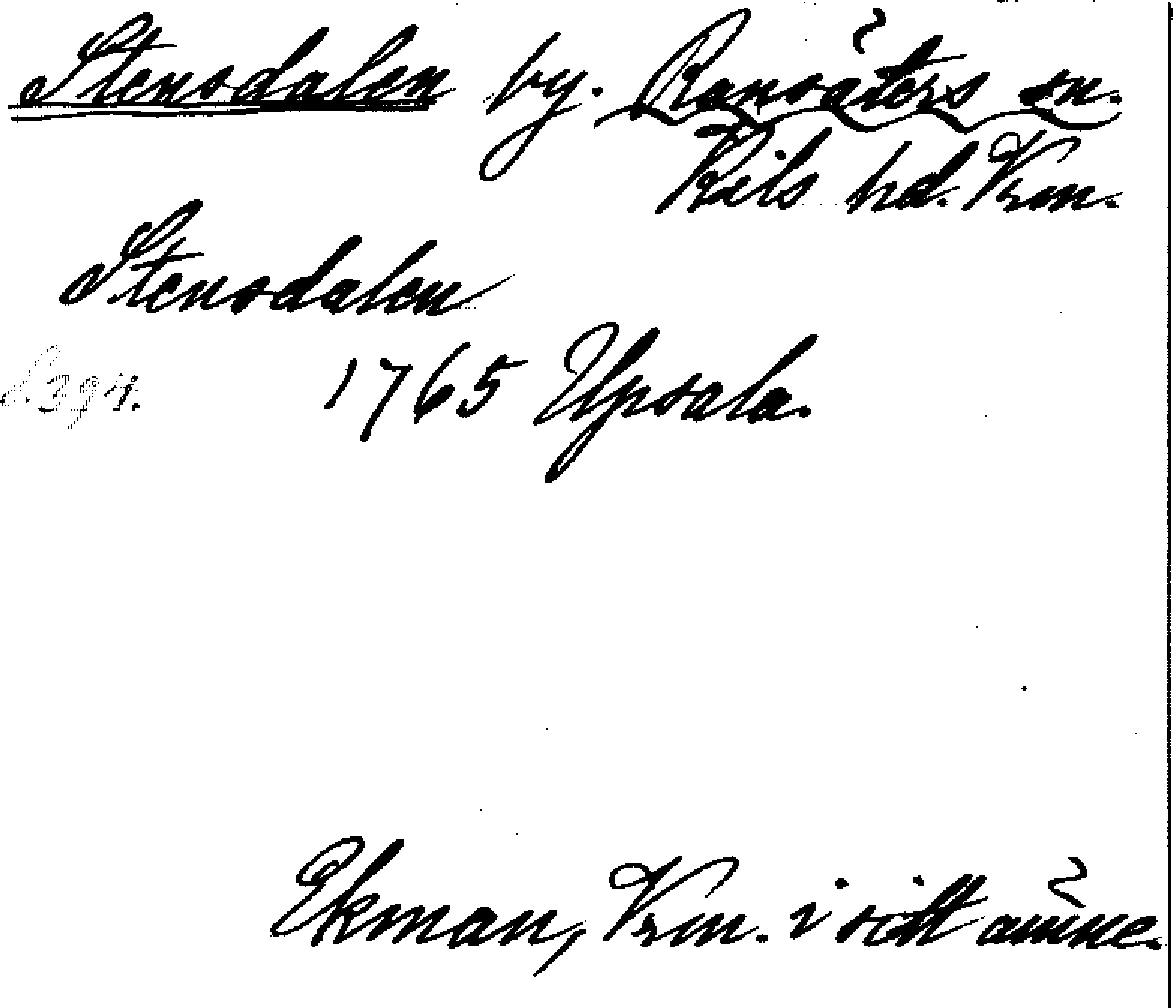 Stensdalen by. Ransäters sn.
Kils hd. Vrm.
Stensdalen
1765 Upsala.
s. 394.
Ekman, Vrm. i sitt ämne.